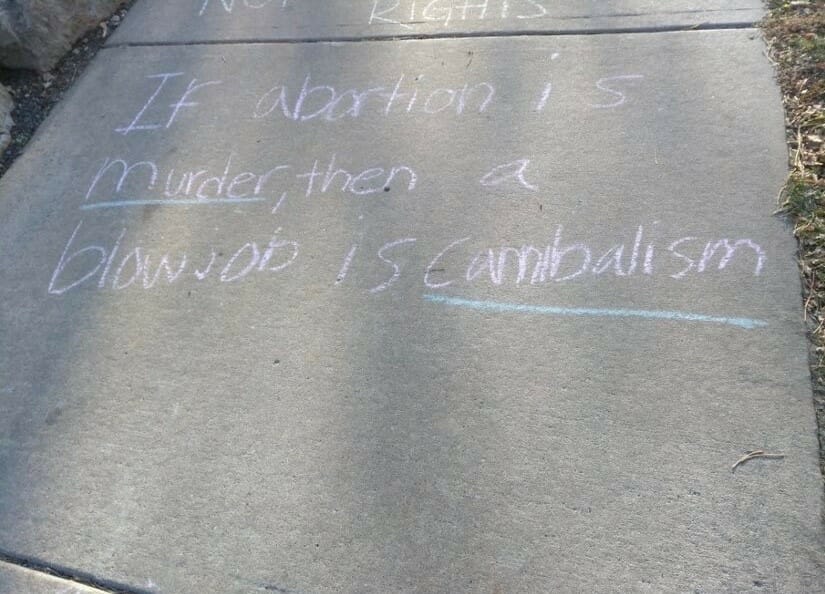 NOT RIGHTS
If abortion is
murder, then a
blowjob is cannibalism